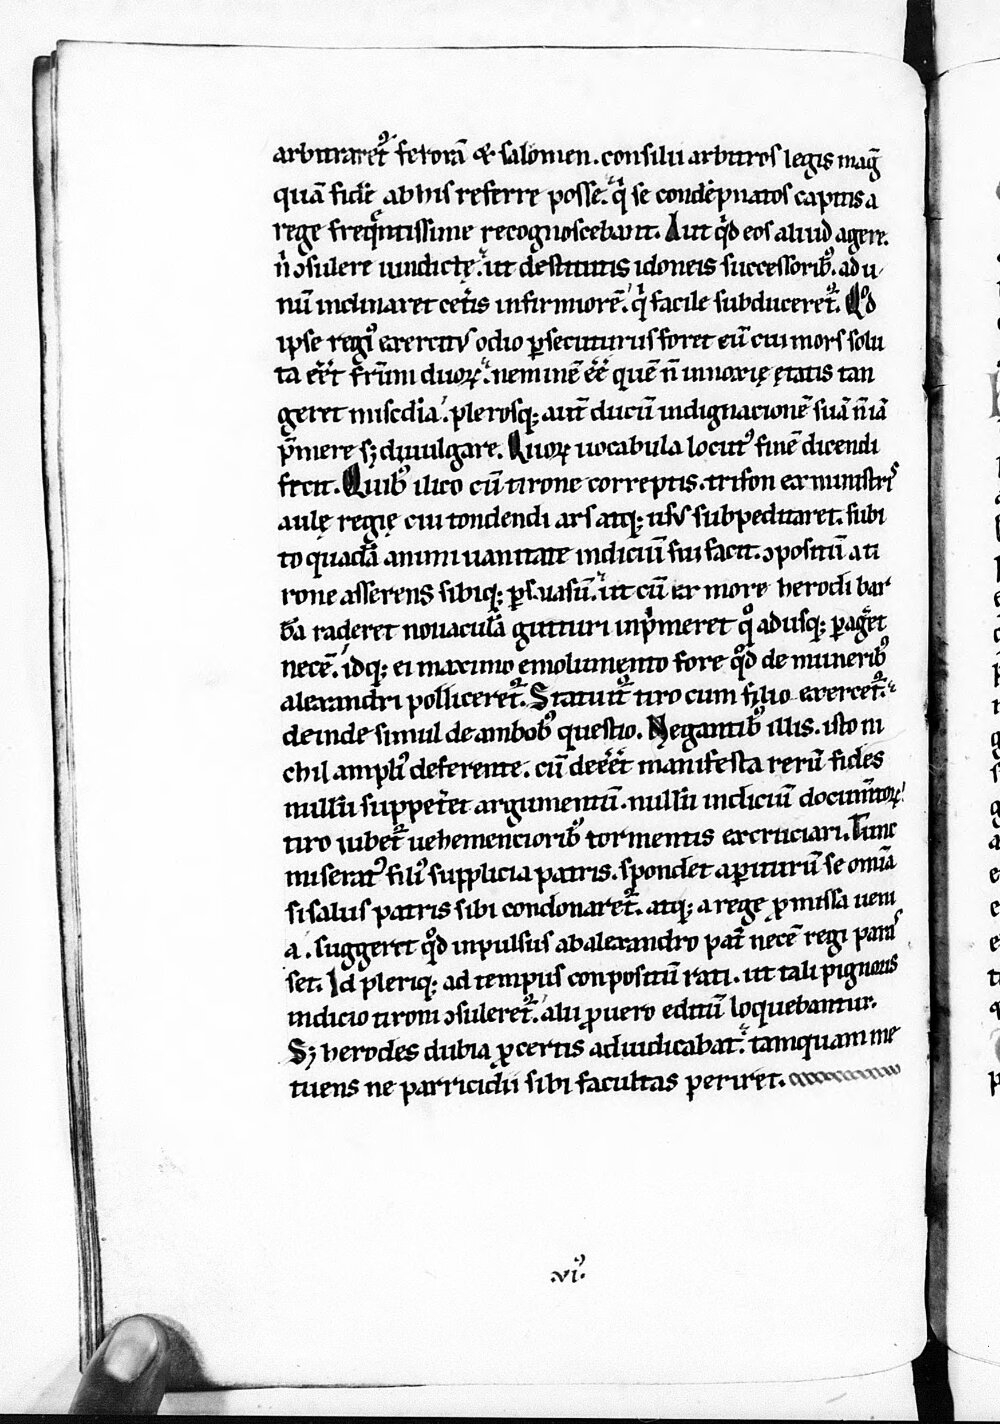 arbitraret᷑ ferorā & salomen. consilii arbitros legis mag̅
quā fidē ab his referre posse. q̇ se condēpnatos capitis a
rege freq̅ntissime recognoscebant. Aut qd̊ eos aliud agere.
n̄ ↄsulere iudicię. ut destitutis idoneis successorib᷒. ad u
nū inclinaret cet̄is infirmiorē. q̇ facile subduceret᷑. Qd̊
ipse regi᷒ exercit᷒ odio ꝑsecuturus foret eū cui mors solu
ta eēt fr̄um duoꝝ. neminē eḗ quē n̄ innoxię ętatis tan
geret mis̄c̄dia. plerosq; aut̄ ducū indignacionē suā n̄ iā
p̄mere sꝫ diuulgare. Quoꝝ uocabula locut᷒ finē dicendi
fecit. Quib᷒ ilico cū tirone correptis. trifon ex ministris
aulę regię cui tondendi ars atq; usus subpeditaret. subi
to quadā animi uanitate indiciū sui facit. ↄpositū a ti
rone asserens sibiq; ꝑsuasū. ut cū ex more herodi bar
bā raderet nouaculā gutturi inp̄meret q̊ adusq; ꝑaget
necē. idq; ei maximo emolumento fore qd̊ de munerib᷒
alexandri polliceret᷑. Statuit᷑ tiro cum filio exercet᷑.
deinde simul de ambob᷒ questio. Negantib᷒ illis. isto ni
chil ampli᷒ deferente. cū deeēt manifesta rerū fides
nullū suppet̄et argumentū. nullū indiciū documtoꝝ.
tiro iubet᷑ uehemenciorib᷒ tormentis excruciari. Tunc
miserat᷒ fili᷒ supplicia patris. spondet aꝑiturū se om̄ia
si salus patris sibi condonaret᷑. atq; a rege ꝓmissa ueni
a. suggeret qd̊ inpulsus ab alexandro pat̄ necē regi paras
set. Id pleriq; ad tempus conpositū rati. ut tali pignoris
indicio tironi ↄsuleret᷑. alii ꝓ uero editū loquebantur.
Sꝫ herodes dubia ꝓ certis adiudicabat. tamquam me
tuens ne parricidii sibi facultas periret.
.vi᷒.